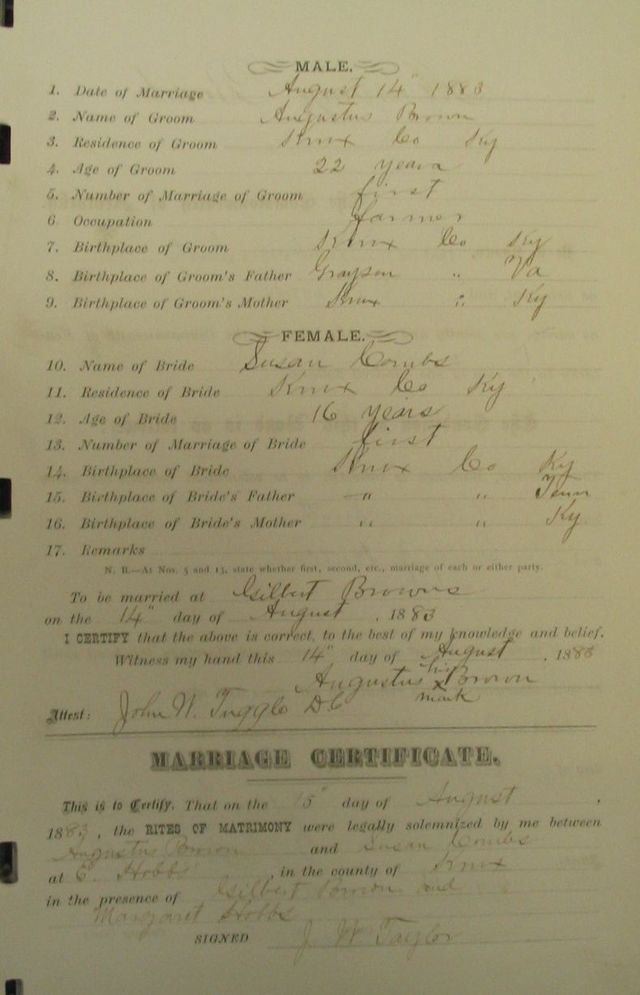 MALE.
1. Date of Marriage August 14" 1883
2. Name of Groom Augustus Brown
3. Residence of Groom Knox Co Ky
4. Age of Groom 22 years
5. Number of Marriage of Groom first
6 Occupation Farmer
7. Birthplace of Groom Knox Co Ky
8. Birthplace of Groom's Father Grayson " Va
9. Birthplace of Groom's Mother Knox " Ky
FEMALE.
10. Name of Bride Susan Combs
11. Residence of Bride Knox Co Ky
12. Age of Bride 16 years
13. Number of Marriage of Bride first
14. Birthplace of Bride Knox Co Ky
15. Birthplace of Bride's Father " " Tenn
16. Birthplace of Bride's Mother " " Ky
17. Remarks
N. B.—At Nos. 5 and 13, state whether first, second, etc., marriage of each or either party.
To be married at Gilbert Browns
on the 14" day of August , 1883
I CERTIFY that the above is correct, to the best of my knowledge and belief.
Witness my hand this 14" day of August , 1883
Augustus his x mark Brown
Attest: John W. Tuggle D C
MARRIAGE CERTIFICATE.
This is to Certify, That on the 15" day of August ,
1883, the RITES OF MATRIMONY were legally solemnized by me between
Augustus Brown and Susan Combs
at C. Hobbs , in the county of Knox
in the presence of Gilbert Brown and
Margaret Hobbs
SIGNED J W Taylor